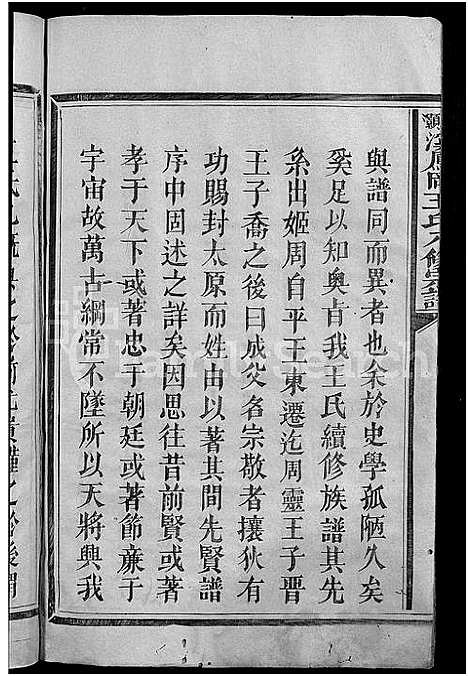 與譜同而異者也余於史學孤陋久矣
奚足以知奧旨我王氏續修族譜其先
系出姬周自平王東遷迄周靈王子晉
王子喬之後曰成父名宗敬者攘狄有
功賜封太原而姓由以著其間先賢譜
序中固述之詳矣因思往昔前賢或著
孝于天下或著忠于朝廷或著節亷于
宇宙故萬古綱常不墜所以天將興我